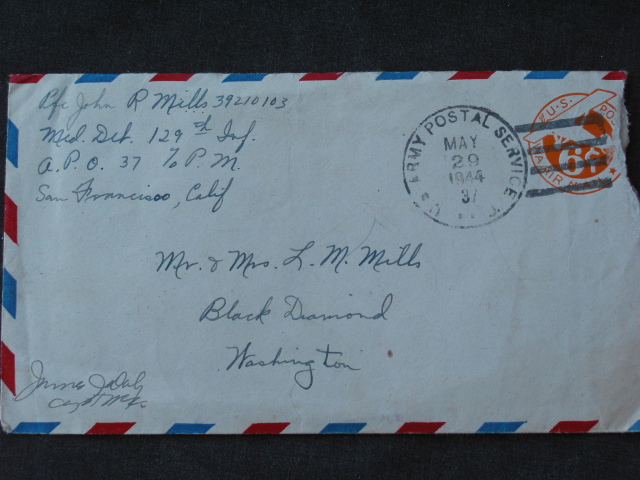 Pfc John R Mills 39210103
Med. Det. 129th Inf.
A.P.O. 37 % P.M.
San Francisco, Calif
U.S. ARMY POSTAL SERVICE
MAY
29
1944
37
U.S. PO
6¢
AIR
Mr. & Mrs. L. M. Mills
Black Diamond
Washington